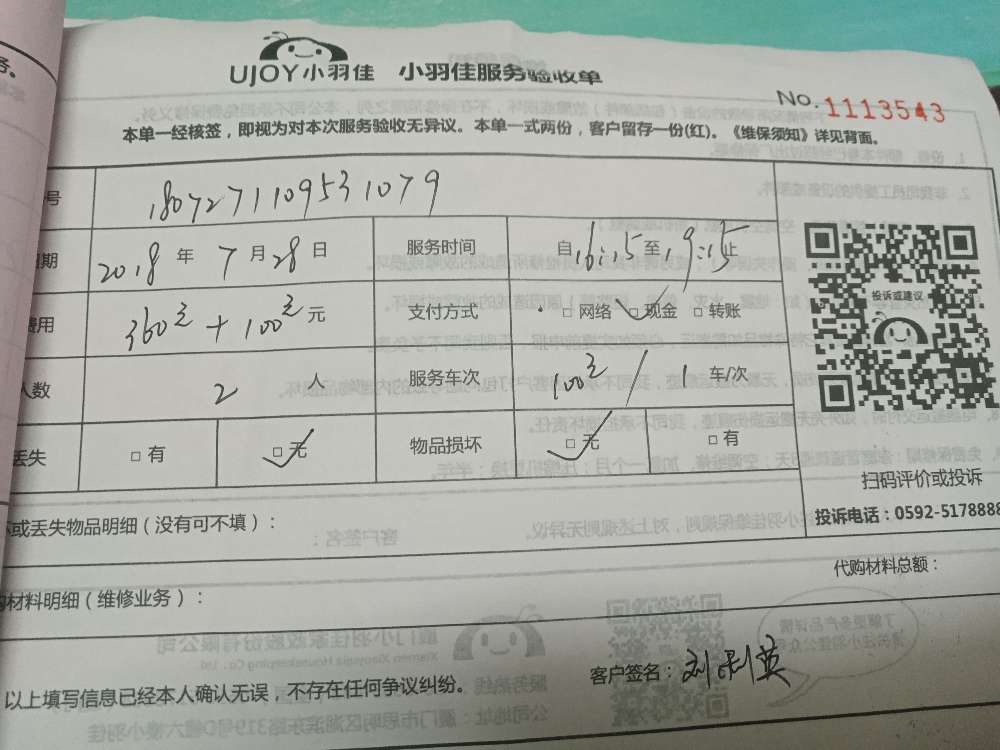 务.
UJOY小羽佳 小羽佳服务验收单
No. 1113543
本单一经核签，即视为对本次服务验收无异议。本单一式两份，客户留存一份(红)。《维保须知》详见背面。
号 1807271109531079
期 2018 年 7 月 28 日 服务时间 自 16:15 至 19:13 止
费用 360元 + 100元 元 支付方式 □ 网络 □ 现金 □ 转账
人数 2 人 服务车次 100元 / 1 车/次
丢失 □ 有 □ 无 物品损坏 □ 无 □ 有
投诉或建议
扫码评价或投诉
投诉电话：0592-5178888
坏或丢失物品明细（没有可不填）：
购材料明细（维修业务）：
代购材料总额：
以上填写信息已经本人确认无误，不存在任何争议纠纷。
客户签名：